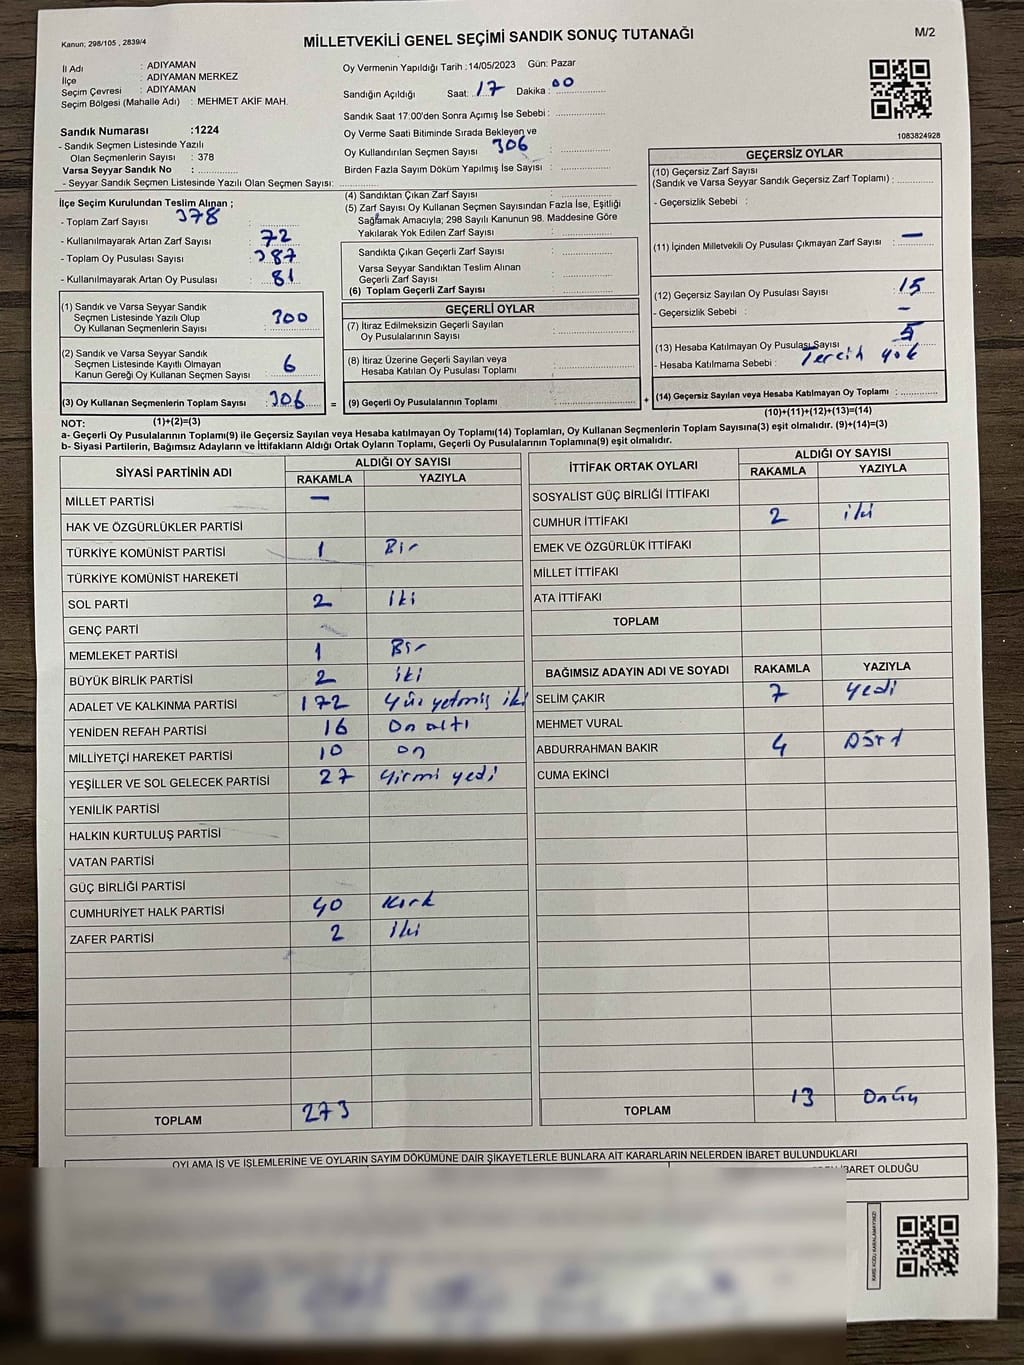 Kanun; 298/105 , 2839/4
MİLLETVEKİLİ GENEL SEÇİMİ SANDIK SONUÇ TUTANAĞI
M/2
İl Adı : ADIYAMAN
İlçe : ADIYAMAN MERKEZ
Seçim Çevresi : ADIYAMAN
Seçim Bölgesi (Mahalle Adı) : MEHMET AKİF MAH.
Sandık Numarası :1224
- Sandık Seçmen Listesinde Yazılı
Olan Seçmenlerin Sayısı : 378
Varsa Seyyar Sandık No :
- Seyyar Sandık Seçmen Listesinde Yazılı Olan Seçmen Sayısı:
Oy Vermenin Yapıldığı Tarih :14/05/2023 Gün: Pazar
Sandığın Açıldığı Saat: 17 Dakika: 00
Sandık Saat 17:00'den Sonra Açımış İse Sebebi :
Oy Verme Saati Bitiminde Sırada Bekleyen ve
Oy Kullandırılan Seçmen Sayısı 306 :
Birden Fazla Sayım Döküm Yapılmış İse Sayısı :
1083824928
İlçe Seçim Kurulundan Teslim Alınan ;
- Toplam Zarf Sayısı 378
- Kullanılmayarak Artan Zarf Sayısı 72
- Toplam Oy Pusulası Sayısı 387
- Kullanılmayarak Artan Oy Pusulası 81
(1) Sandık ve Varsa Seyyar Sandık
Seçmen Listesinde Yazılı Olup
Oy Kullanan Seçmenlerin Sayısı 300
(2) Sandık ve Varsa Seyyar Sandık
Seçmen Listesinde Kayıtlı Olmayan
Kanun Gereği Oy Kullanan Seçmen Sayısı 6
(3) Oy Kullanan Seçmenlerin Toplam Sayısı : 306 =
(4) Sandıktan Çıkan Zarf Sayısı :
(5) Zarf Sayısı Oy Kullanan Seçmen Sayısından Fazla İse, Eşitliği
Sağlamak Amacıyla; 298 Sayılı Kanunun 98. Maddesine Göre
Yakılarak Yok Edilen Zarf Sayısı :
Sandıkta Çıkan Geçerli Zarf Sayısı :
Varsa Seyyar Sandıktan Teslim Alınan
Geçerli Zarf Sayısı :
(6) Toplam Geçerli Zarf Sayısı :
GEÇERLİ OYLAR
(7) İtiraz Edilmeksizin Geçerli Sayılan
Oy Pusulalarının Sayısı :
(8) İtiraz Üzerine Geçerli Sayılan veya
Hesaba Katılan Oy Pusulası Toplamı :
(9) Geçerli Oy Pusulalarının Toplamı : +
GEÇERSİZ OYLAR
(10) Geçersiz Zarf Sayısı
(Sandık ve Varsa Seyyar Sandık Geçersiz Zarf Toplamı) :
- Geçersizlik Sebebi :
(11) İçinden Milletvekili Oy Pusulası Çıkmayan Zarf Sayısı : —
(12) Geçersiz Sayılan Oy Pusulası Sayısı : 15
- Geçersizlik Sebebi : -
(13) Hesaba Katılmayan Oy Pusulası Sayısı : 5
- Hesaba Katılmama Sebebi : Tercih yok
(14) Geçersiz Sayılan veya Hesaba Katılmayan Oy Toplamı :
(10)+(11)+(12)+(13)=(14)
NOT: (1)+(2)=(3)
a- Geçerli Oy Pusulalarının Toplamı(9) ile Geçersiz Sayılan veya Hesaba katılmayan Oy Toplamı(14) Toplamları, Oy Kullanan Seçmenlerin Toplam Sayısına(3) eşit olmalıdır. (9)+(14)=(3)
b- Siyasi Partilerin, Bağımsız Adayların ve İttifakların Aldığı Ortak Oyların Toplamı, Geçerli Oy Pusulalarının Toplamına(9) eşit olmalıdır.
SİYASİ PARTİNİN ADI ALDIĞI OY SAYISI
RAKAMLA YAZIYLA
MİLLET PARTİSİ —
HAK VE ÖZGÜRLÜKLER PARTİSİ
TÜRKİYE KOMÜNİST PARTİSİ 1 Bir
TÜRKİYE KOMÜNİST HAREKETİ
SOL PARTİ 2 iki
GENÇ PARTİ
MEMLEKET PARTİSİ 1 Bir
BÜYÜK BİRLİK PARTİSİ 2 iki
ADALET VE KALKINMA PARTİSİ 172 yüz yetmiş iki
YENİDEN REFAH PARTİSİ 16 On altı
MİLLİYETÇİ HAREKET PARTİSİ 10 on
YEŞİLLER VE SOL GELECEK PARTİSİ 27 yirmi yedi
YENİLİK PARTİSİ
HALKIN KURTULUŞ PARTİSİ
VATAN PARTİSİ
GÜÇ BİRLİĞİ PARTİSİ
CUMHURİYET HALK PARTİSİ 40 kırk
ZAFER PARTİSİ 2 iki
TOPLAM 273
İTTİFAK ORTAK OYLARI ALDIĞI OY SAYISI
RAKAMLA YAZIYLA
SOSYALİST GÜÇ BİRLİĞİ İTTİFAKI
CUMHUR İTTİFAKI 2 iki
EMEK VE ÖZGÜRLÜK İTTİFAKI
MİLLET İTTİFAKI
ATA İTTİFAKI
TOPLAM
BAĞIMSIZ ADAYIN ADI VE SOYADI RAKAMLA YAZIYLA
SELİM ÇAKIR 7 yedi
MEHMET VURAL
ABDURRAHMAN BAKIR 4 Dört
CUMA EKİNCİ
TOPLAM 13 Onüç
OYLAMA İŞ VE İŞLEMLERİNE VE OYLARIN SAYIM DÖKÜMÜNE DAİR ŞİKAYETLERLE BUNLARA AİT KARARLARIN NELERDEN İBARET BULUNDUKLARI
İBARET OLDUĞU